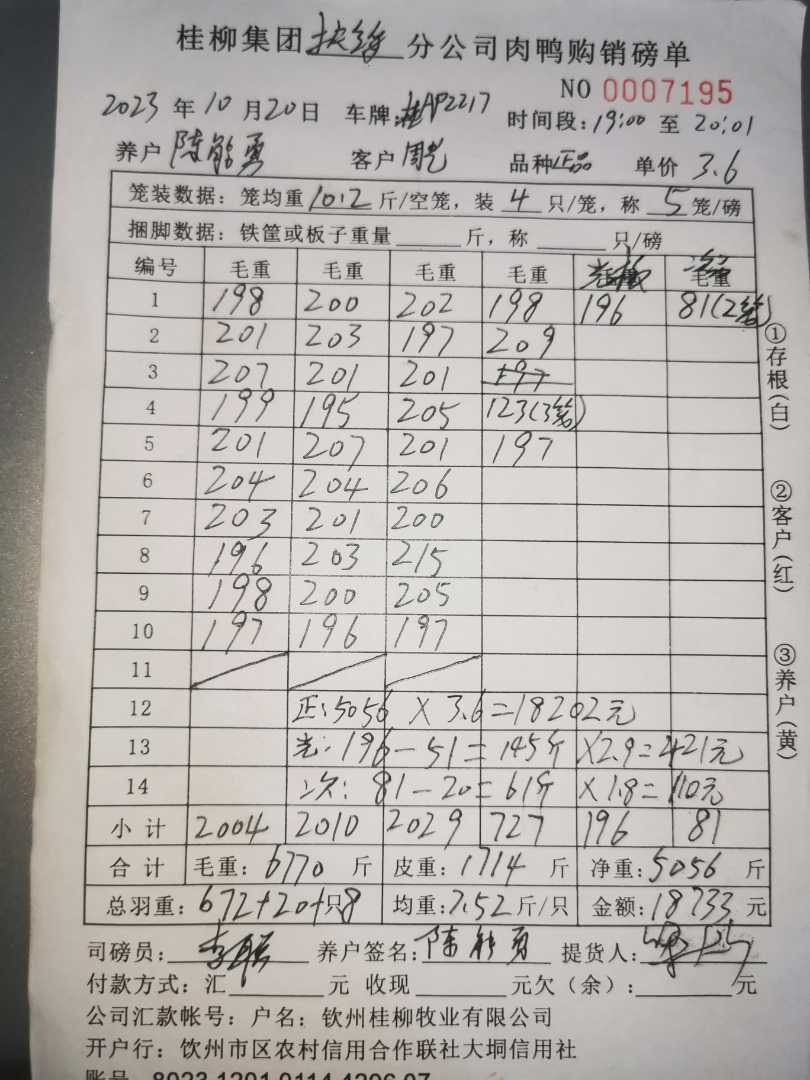 桂柳集团 分公司肉鸭购销磅单
NO 0007195
2023 年 10 月 20 日 车牌: 桂AP2217 时间段: 19:00 至 20:01
养户 陈能勇 客户 周艺 品种 正品 单价 3.6
笼装数据: 笼均重 10.2 斤/空笼, 装 4 只/笼, 称 5 笼/磅
捆脚数据: 铁筐或板子重量 斤, 称 只/磅
编号 毛重 毛重 毛重 毛重 毛重
1 198 200 202 198 196 81(2笼)
2 201 203 197 209
3 207 201 201 197
4 199 195 205 123(3笼)
5 201 207 201 197
6 204 204 206
7 203 201 200
8 196 203 215
9 198 200 205
10 197 196 197
11
12 正: 5056 × 3.6 = 18202元
13 光: 196 - 51 = 145斤 × 2.9 = 421元
14 次: 81 - 20 = 61斤 × 1.8 = 110元
小计 2004 2010 2029 727 196 81
合计 毛重: 6770 斤 皮重: 1714 斤 净重: 5056 斤
总羽重: 672+20+8 只 均重: 7.52 斤/只 金额: 18733 元
司磅员: 养户签名: 陈能勇 提货人:
付款方式: 汇 元 收现 元欠(余): 元
公司汇款帐号: 户名: 钦州桂柳牧业有限公司
开户行: 钦州市区农村信用合作联社大垌信用社
账号 8023 1201 0114 4206 07
①存根(白)
②客户(红)
③养户(黄)